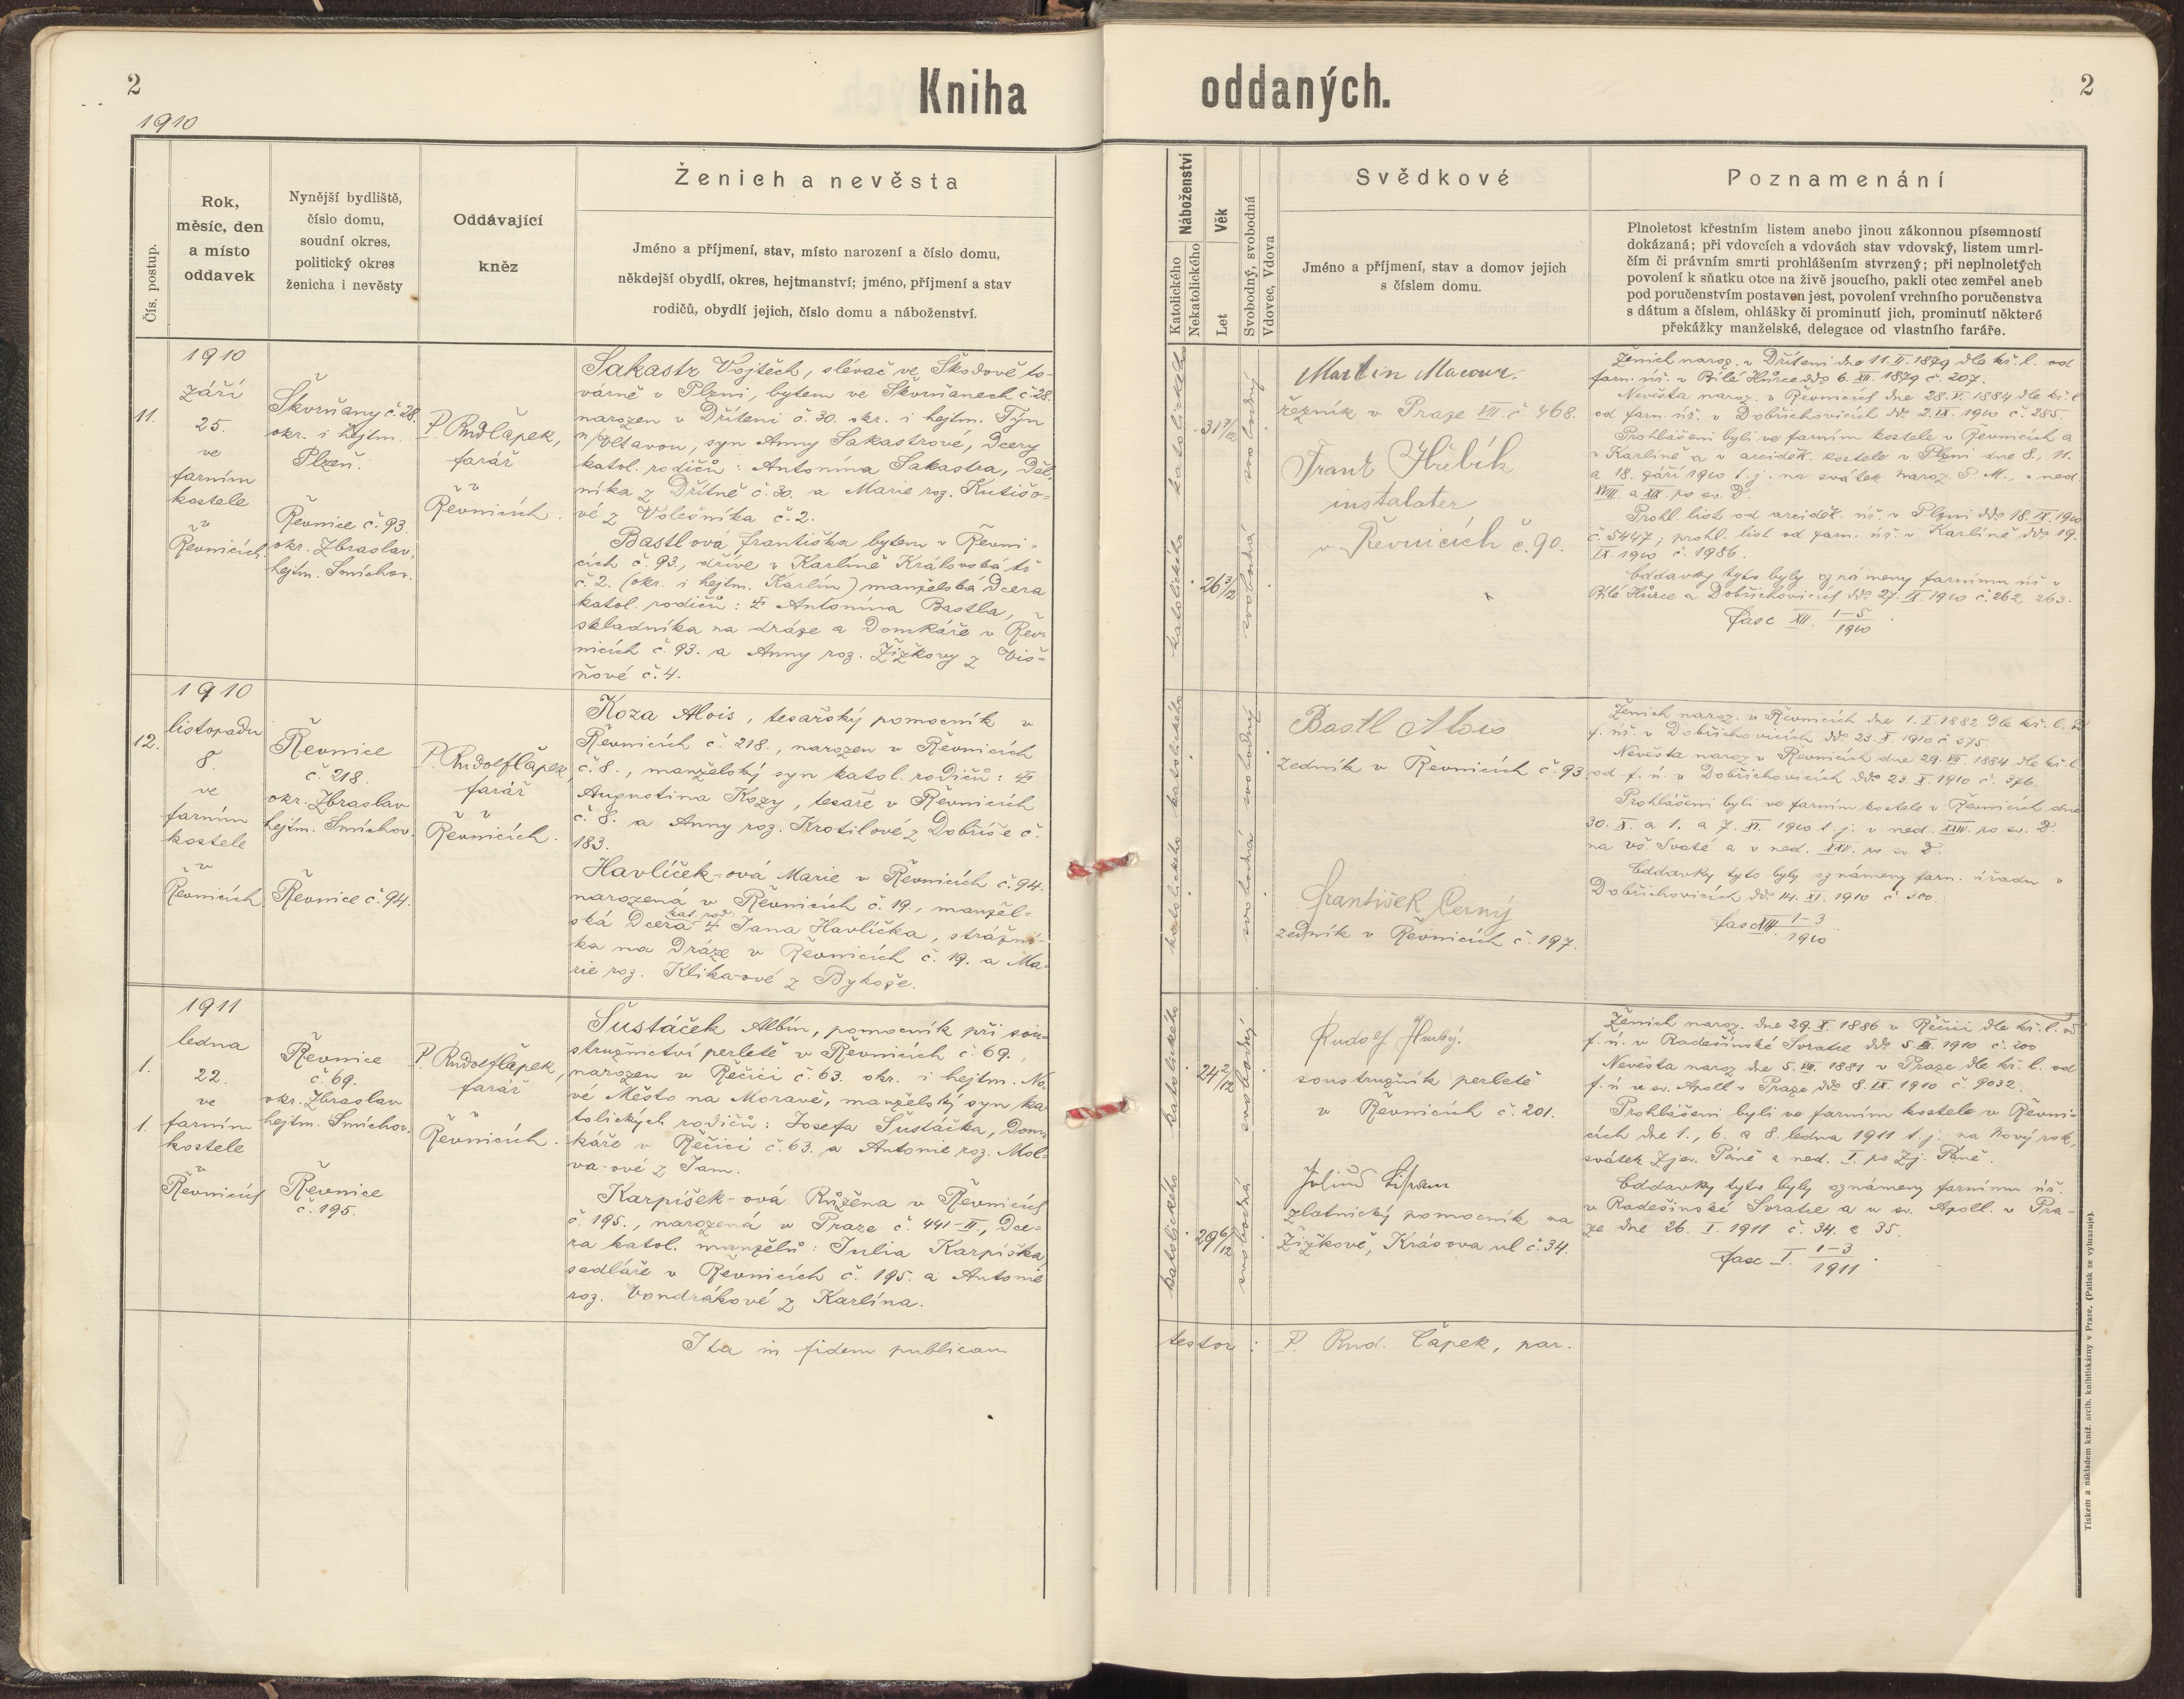 2
Kniha
oddaných.
2
1910
Čís. postup.
Rok,
měsíc, den
a místo
oddavek
Nynější bydliště,
číslo domu,
soudní okres,
politický okres
ženicha i nevěsty
Oddávající
kněz
Ženich a nevěsta
Jméno a příjmení, stav, místo narození a číslo domu,
někdejší obydlí, okres, hejtmanství; jméno, příjmení a stav
rodičů, obydlí jejich, číslo domu a náboženství.
Náboženství
Katolického
Nekatolického
Věk
Let
Svobodný, svobodná
Vdovec, Vdova
Svědkové
Jméno a příjmení, stav a domov jejich
s číslem domu.
Poznamenání
Plnoletost křestním listem anebo jinou zákonnou písemností
dokázaná; při vdovcích a vdovách stav vdovský, listem umrl-
čím či právním smrti prohlášením stvrzený; při neplnoletých
povolení k sňatku otce na živě jsoucího, pakli otec zemřel aneb
pod poručenstvím postaven jest, povolení vrchního poručenstva
s dátum a číslem, ohlášky či prominutí jich, prominutí některé
překážky manželské, delegace od vlastního faráře.
11.
1910
září
25.
ve
farním
kostele
v
Řevnicích.
Škvrňany č. 28.
okr. i hejtm.
Plzeň.
Řevnice č. 93.
okr. Zbraslav,
hejtm. Smíchov.
P. Rud. Čapek,
farář
v
Řevnicích.
Sakastr Vojtěch, slévač ve Škodově to-
várně v Plzni, bytem ve Škvrňanech č. 28.
narozen v Dříteni č. 30. okr. i hejtm. Týn
n/Vltavou, syn Anny Sakastrové, dcery
katol. rodičů: Antonína Sakastra, děl-
níka z Dřítně č. 30. a Marie roz. Kutišo-
vé z Volešníka č. 2.
Bastlová Františka bytem v Řevni-
cích č. 93., dříve v Karlíně Královská tř.
č. 2. (okr. i hejtm. Karlín) manželská dcera
katol. rodičů: † Antonína Bastla,
skladníka na dráze a domkáře v Řev-
nicích č. 93. a Anny roz. Žižkovy z Viš-
ňové č. 4.
katolického
katolického
31 7/12
26 3/12
svobodný
svobodná
Martin Macour.
řezník v Praze VII. č. 468.
Frant Hřebík
instalater
v Řevnicích č. 90.
Ženich naroz. v Dříteni dne 11. II. 1879 dle kř. l. od
farn. úř. v Bílé Hůrce ddo 6. XII. 1879 č. 207.
Nevěsta naroz. v Řevnicích dne 28. V. 1884 dle kř. l.
od farn. úř. v Dobřichovicích ddo 2. IX. 1910 č. 285.
Prohlášeni byli ve farním kostele v Řevnicích a
v Karlíně a v arciděk. kostele v Plzni dne 8., 11.
a 18. září 1910 t. j. na svátek naroz. P. M., v ned.
XVII. a XIX. po sv. D.
Prohl. list od arciděk. úř. v Plzni ddo 18. IX. 1910
č. 5447; prohl. list od farn. úř. v Karlíně ddo 19.
IX. 1910 č. 1986.
Oddavky tyto byly oznámeny farnímu úř. v
Bílé Hůrce a Dobřichovicích ddo 27. IX. 1910 č. 262, 263.
fasc XII. 1-5/1910.
12.
1910
listopadu
8.
ve
farním
kostele
v
Řevnicích
Řevnice
č. 218.
okr. Zbraslav
hejtm. Smíchov.
Řevnice č. 94.
P. Rudolf Čapek,
farář
v
Řevnicích.
Koza Alois, tesařský pomocník v
Řevnicích č. 218., narozen v Řevnicích
č. 8., manželský syn katol. rodičů: †
Augustina Kozy, tesaře v Řevnicích
č. 8. a Anny roz. Krotilové z Dobříše č.
183.
Havlíček-ová Marie v Řevnicích č. 94.
narozená v Řevnicích č. 19., manžel-
ská dcera kat. rod. † Jana Havlíčka, strážní-
ka na dráze v Řevnicích č. 19. a Ma-
rie roz. Klika-ové z Bykoše.
katolického
katolického
svobodný
svobodná
Bastl Alois
zedník v Řevnicích č. 93
František Černý
zedník v Řevnicích č. 197.
Ženich naroz. v Řevnicích dne 1. X. 1882 dle kř. l. od
f. úř. v Dobřichovicích ddo 23. X. 1910 č. 375.
Nevěsta naroz. v Řevnicích dne 29. VII. 1884 dle kř. l.
od f. ú. v Dobřichovicích ddo 23. X. 1910 č. 376.
Prohlášeni byli ve farním kostele v Řevnicích dne
30. X. a 1. a 7. XI. 1910 t. j. v ned. XXIV. po sv. D.
na vš. Svaté a v ned. XXV. po sv. D.
Oddavky tyto byly oznámeny farn. úřadu v
Dobřichovicích ddo 14. XI. 1910 č. 300.
fasc XIII. 1-3/1910.
1.
1.
1911
ledna
22.
ve
farním
kostele
v
Řevnicích
Řevnice
č. 69.
okr. Zbraslav
hejtm. Smíchov.
Řevnice
č. 195.
P. Rudolf Čapek,
farář
v
Řevnicích.
Šustáček Albín, pomocník při sou-
stružnictví perletě v Řevnicích č. 69.,
narozen v Řečici č. 63. okr. i hejtm. No-
vé Město na Moravě, manželský syn ka-
tolických rodičů: Josefa Šustáčka, dom-
káře v Řečici č. 63. a Antonie roz. Mol-
va-ové z Jam.
Karpíšek-ová Růžena v Řevnicích
č. 195., narozená v Praze č. 441-II., dce-
ra katol. manželů: Julia Karpíška,
sedláře v Řevnicích č. 195. a Antonie
roz. Vondrákové z Karlína.
katolického
katolického
24 2/12
29 6/12
svobodný
svobodná
Rudolf Hrubý.
soustružník perletě
v Řevnicích č. 201.
zlatnický pomocník na
Žižkově, Krásova ul. č. 34.
Ženich naroz. dne 29. X. 1886 v Řečici dle kř. l. od
f. ú. v Radešínské Svratce ddo 5. III. 1910 č. 200
Nevěsta naroz. dne 5. VII. 1881 v Praze dle kř. l. od
f. ú. u sv. Apoll. v Praze ddo 8. IX. 1910 č. 9032.
Prohlášeni byli ve farním kostele v Řevni-
cích dne 1., 6. a 8. ledna 1911 t. j. na Nový rok,
svátek Zjev. Páně a ned. I. po Zj. Páně.
Oddavky tyto byly oznámeny farnímu úř.
v Radešínské Svratce a u sv. Apoll. v Pra-
ze dne 26. I. 1911 č. 34. a 35.
fasc I. 1-3/1911.
Ita in fidem publicam
testor: P. Rud. Čapek, par.
Tiskem a nákladem kníž. arcib. knihtiskárny v Praze. (Patisk se vyhrazuje).